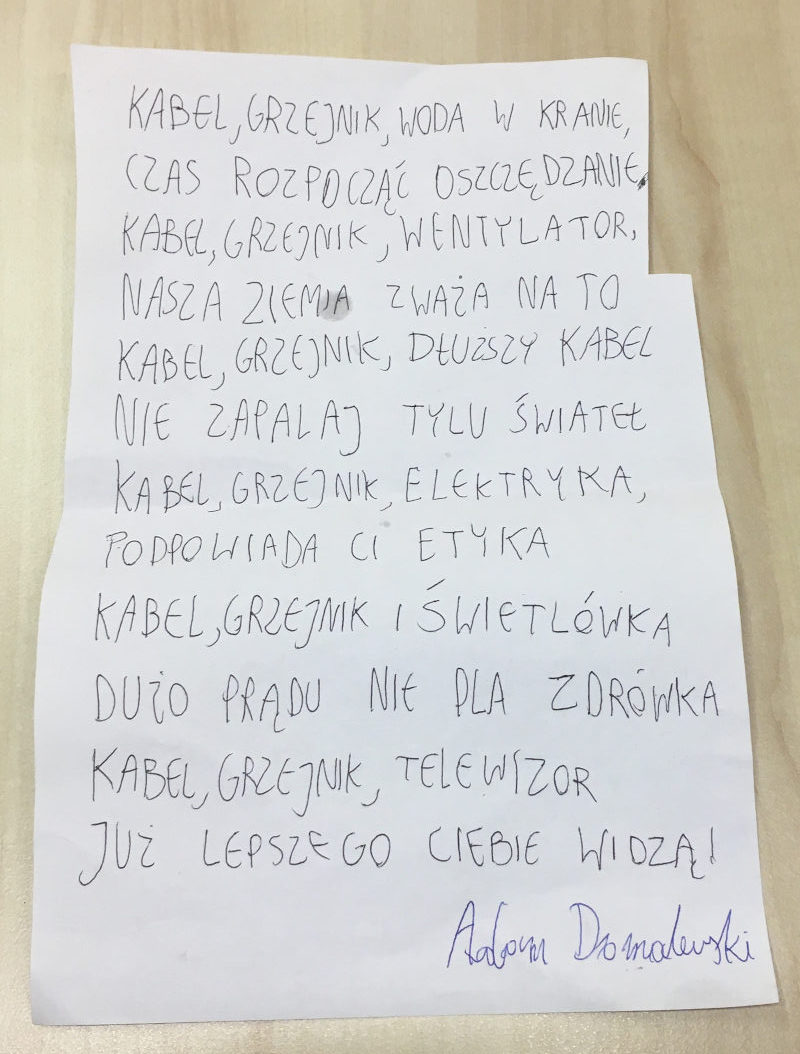 KABEL, GRZEJNIK, WODA W KRANIE,
CZAS ROZPOCZĄĆ OSZCZĘDZANIE,
KABEL, GRZEJNIK, WENTYLATOR,
NASZA ZIEMIA ZWAŻA NA TO
KABEL, GRZEJNIK, DŁUŻSZY KABEL
NIE ZAPALAJ TYLU ŚWIATEŁ
KABEL, GRZEJNIK, ELEKTRYKA,
PODPOWIADA CI ETYKA
KABEL, GRZEJNIK I ŚWIETLÓWKA
DUŻO PRĄDU NIE DLA ZDRÓWKA
KABEL, GRZEJNIK, TELEWIZOR
JUŻ LEPSZEGO CIEBIE WIDZĄ!
Adam Domalewski